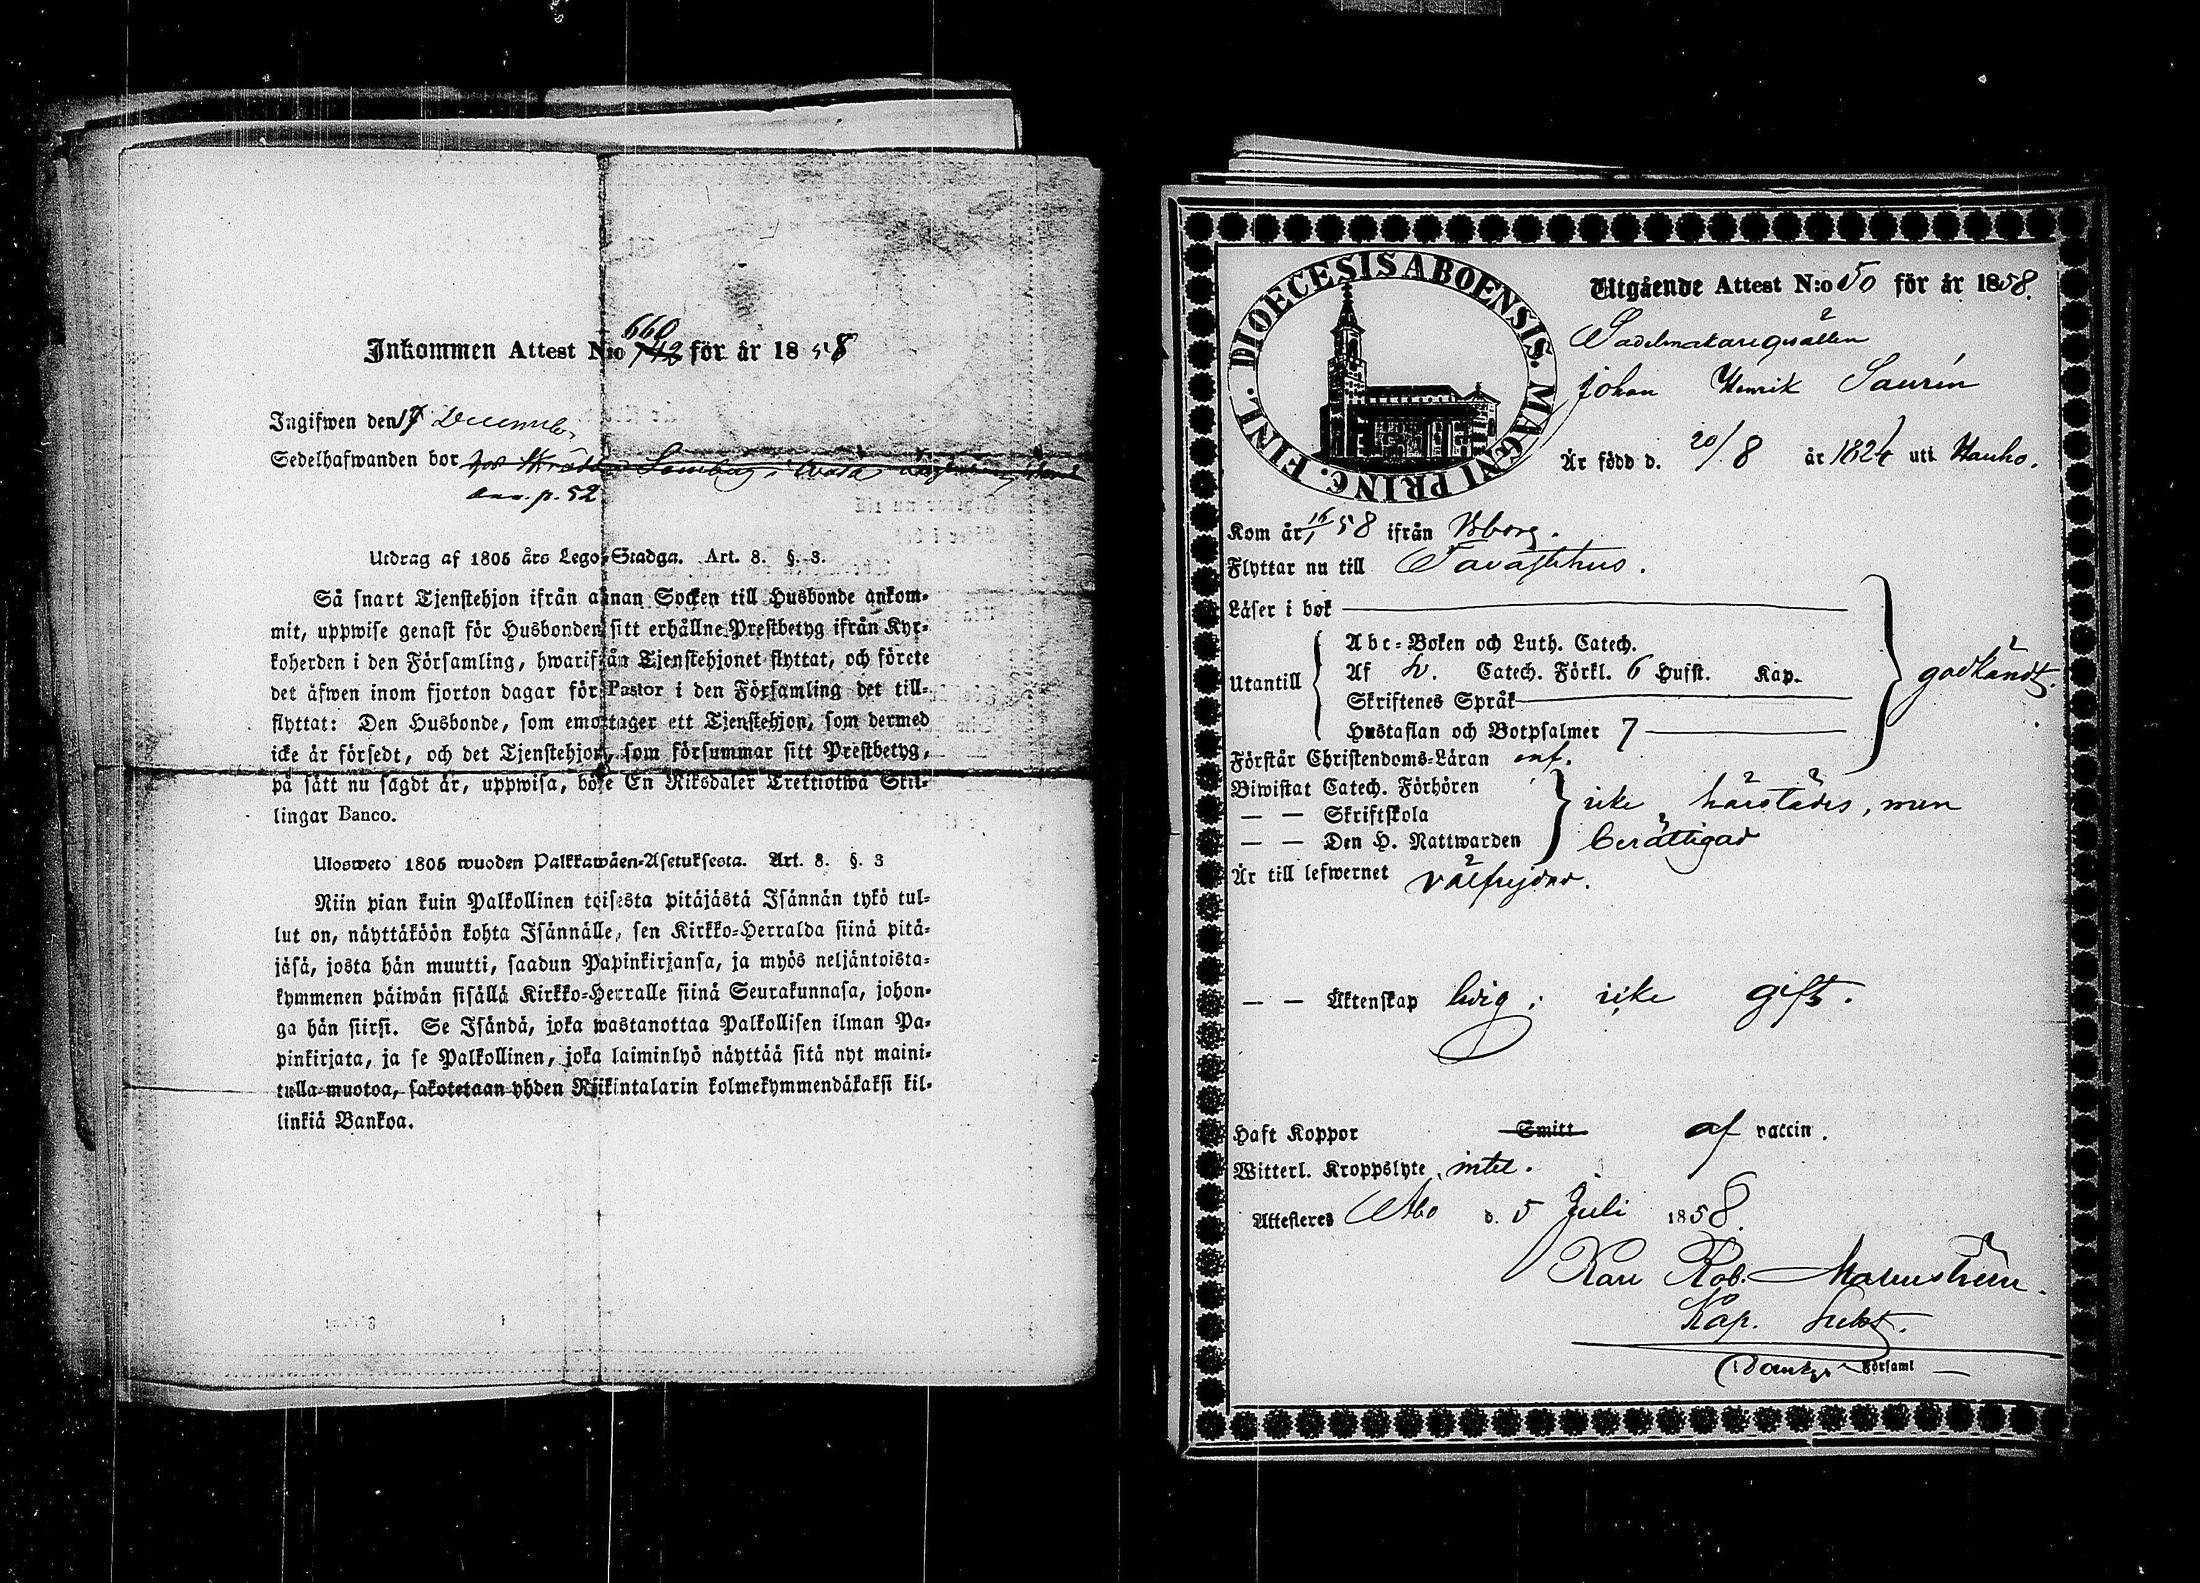 Inkommen Attest N:o 742 660 för år 1858
Ingifwen den 17 December
Sedelhafwanden bor hos Skrädd Lemberg i Wasa
ann. p. 52
Utdrag af 1805 års Lego-Stadga. Art. 8. §. 3.
Så snart Tjenstehjon ifrån annan Socken till Husbonde ankom-
mit, uppwise genast för Husbonden sitt erhållne Prestbetyg ifrån Kyr-
koherden i den Församling, hwarifrån Tjenstehjonet flyttat, och förete
det äfwen inom fjorton dagar för Pastor i den Församling det till-
flyttat: Den Husbonde, som emottager ett Tjenstehjon, som dermed
icke är försedt, och det Tjenstehjon, som försummar sitt Prestbetyg,
på sätt nu sagdt är, uppwisa, böte En Riksdaler Trettiotwå Skil-
lingar Banco.
Ulosweto 1805 wuoden Palkkawäen-Asetuksesta. Art. 8. §. 3
Niin pian kuin Palkollinen toisesta pitäjästä Isännän tykö tul-
lut on, näyttäköön kohta Isännälle, sen Kirkko-Herralda siinä pitä-
jäsä, josta hän muutti, saadun Papinkirjansa, ja myös neljäntoista-
kymmenen päiwän sisällä Kirkko-Herralle siinä Seurakunnasa, johon-
ga hän siirsi. Se Isändä, joka wastanottaa Palkollisen ilman Pa-
pinkirjata, ja se Palkollinen, joka laiminlyö näyttää sitä nyt maini-
tulla muotoa, sakotetaan yhden Riikintalarin kolmekymmendäkaksi kil-
linkiä Bankoa.
DIOECESIS ABOENSIS. MAGNI PRINC. FINL.
Utgående Attest N:o 50 för år 1858.
Sadelmakaregesällen
Johan Henrik Saurén
Är född d. 20/8 år 1824 uti Hauho.
Kom år 16/1 58 ifrån Wborg.
Flyttar nu till Tavastehus.
Läser i bok
Utantill
Abc-Boken och Luth. Catech.
Af Sv. Catech. Förkl. 6 Hufst. Kap.
Skriftenes Språk
Hustaflan och Botpsalmer 7
godkändt.
Förstår Christendoms-Läran enf.
Biwistat Catech. Förhören
— — Skriftskola
— — Den H. Nattwarden
icke härstädes, men
berättigad
Är till lefwernet välfrejdad.
— — Äktenskap ledig; icke gift.
Haft Koppor Smitt af vaccin.
Witterl. Kroppslyte, intet.
Attesteras Åbo d. 5 Juli 1858.
Karl Rob. Malmström.
Kap. Subst.
Domk. Församl